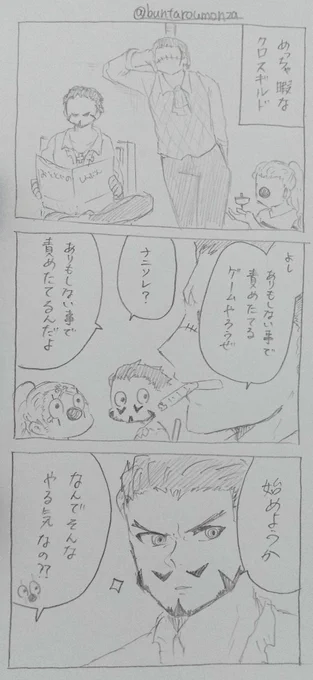 @buntaroumonza
めっちゃ暇な
クロスギルド
よし
ありもしない事で
責めたてる
ゲームやろうぜ
ナニソレ?
ありもしない事で
責めたてるんだよ
始めようか
なんでそんな
やる気なの??